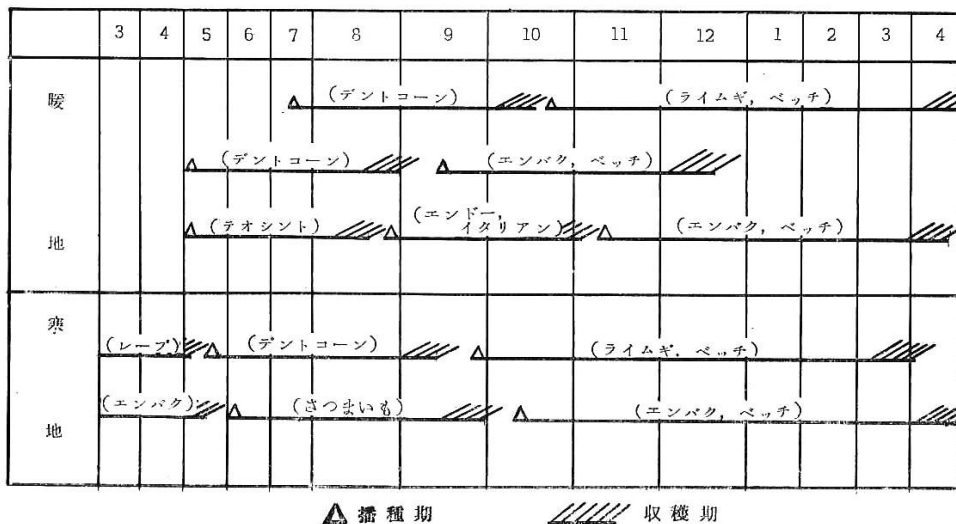 3 4 5 6 7 8 9 10 11 12 1 2 3 4
暖
(デントコーン) (ライムギ, ベッチ)
(デントコーン) (エンバク, ベッチ)
地
(テオシント) (エンドー, イタリアン) (エンバク, ベッチ)
寒
(レープ) (デントコーン) (ライムギ, ベッチ)
(エンバク) (さつまいも) (エンバク, ベッチ)
地
播種期 収穫期